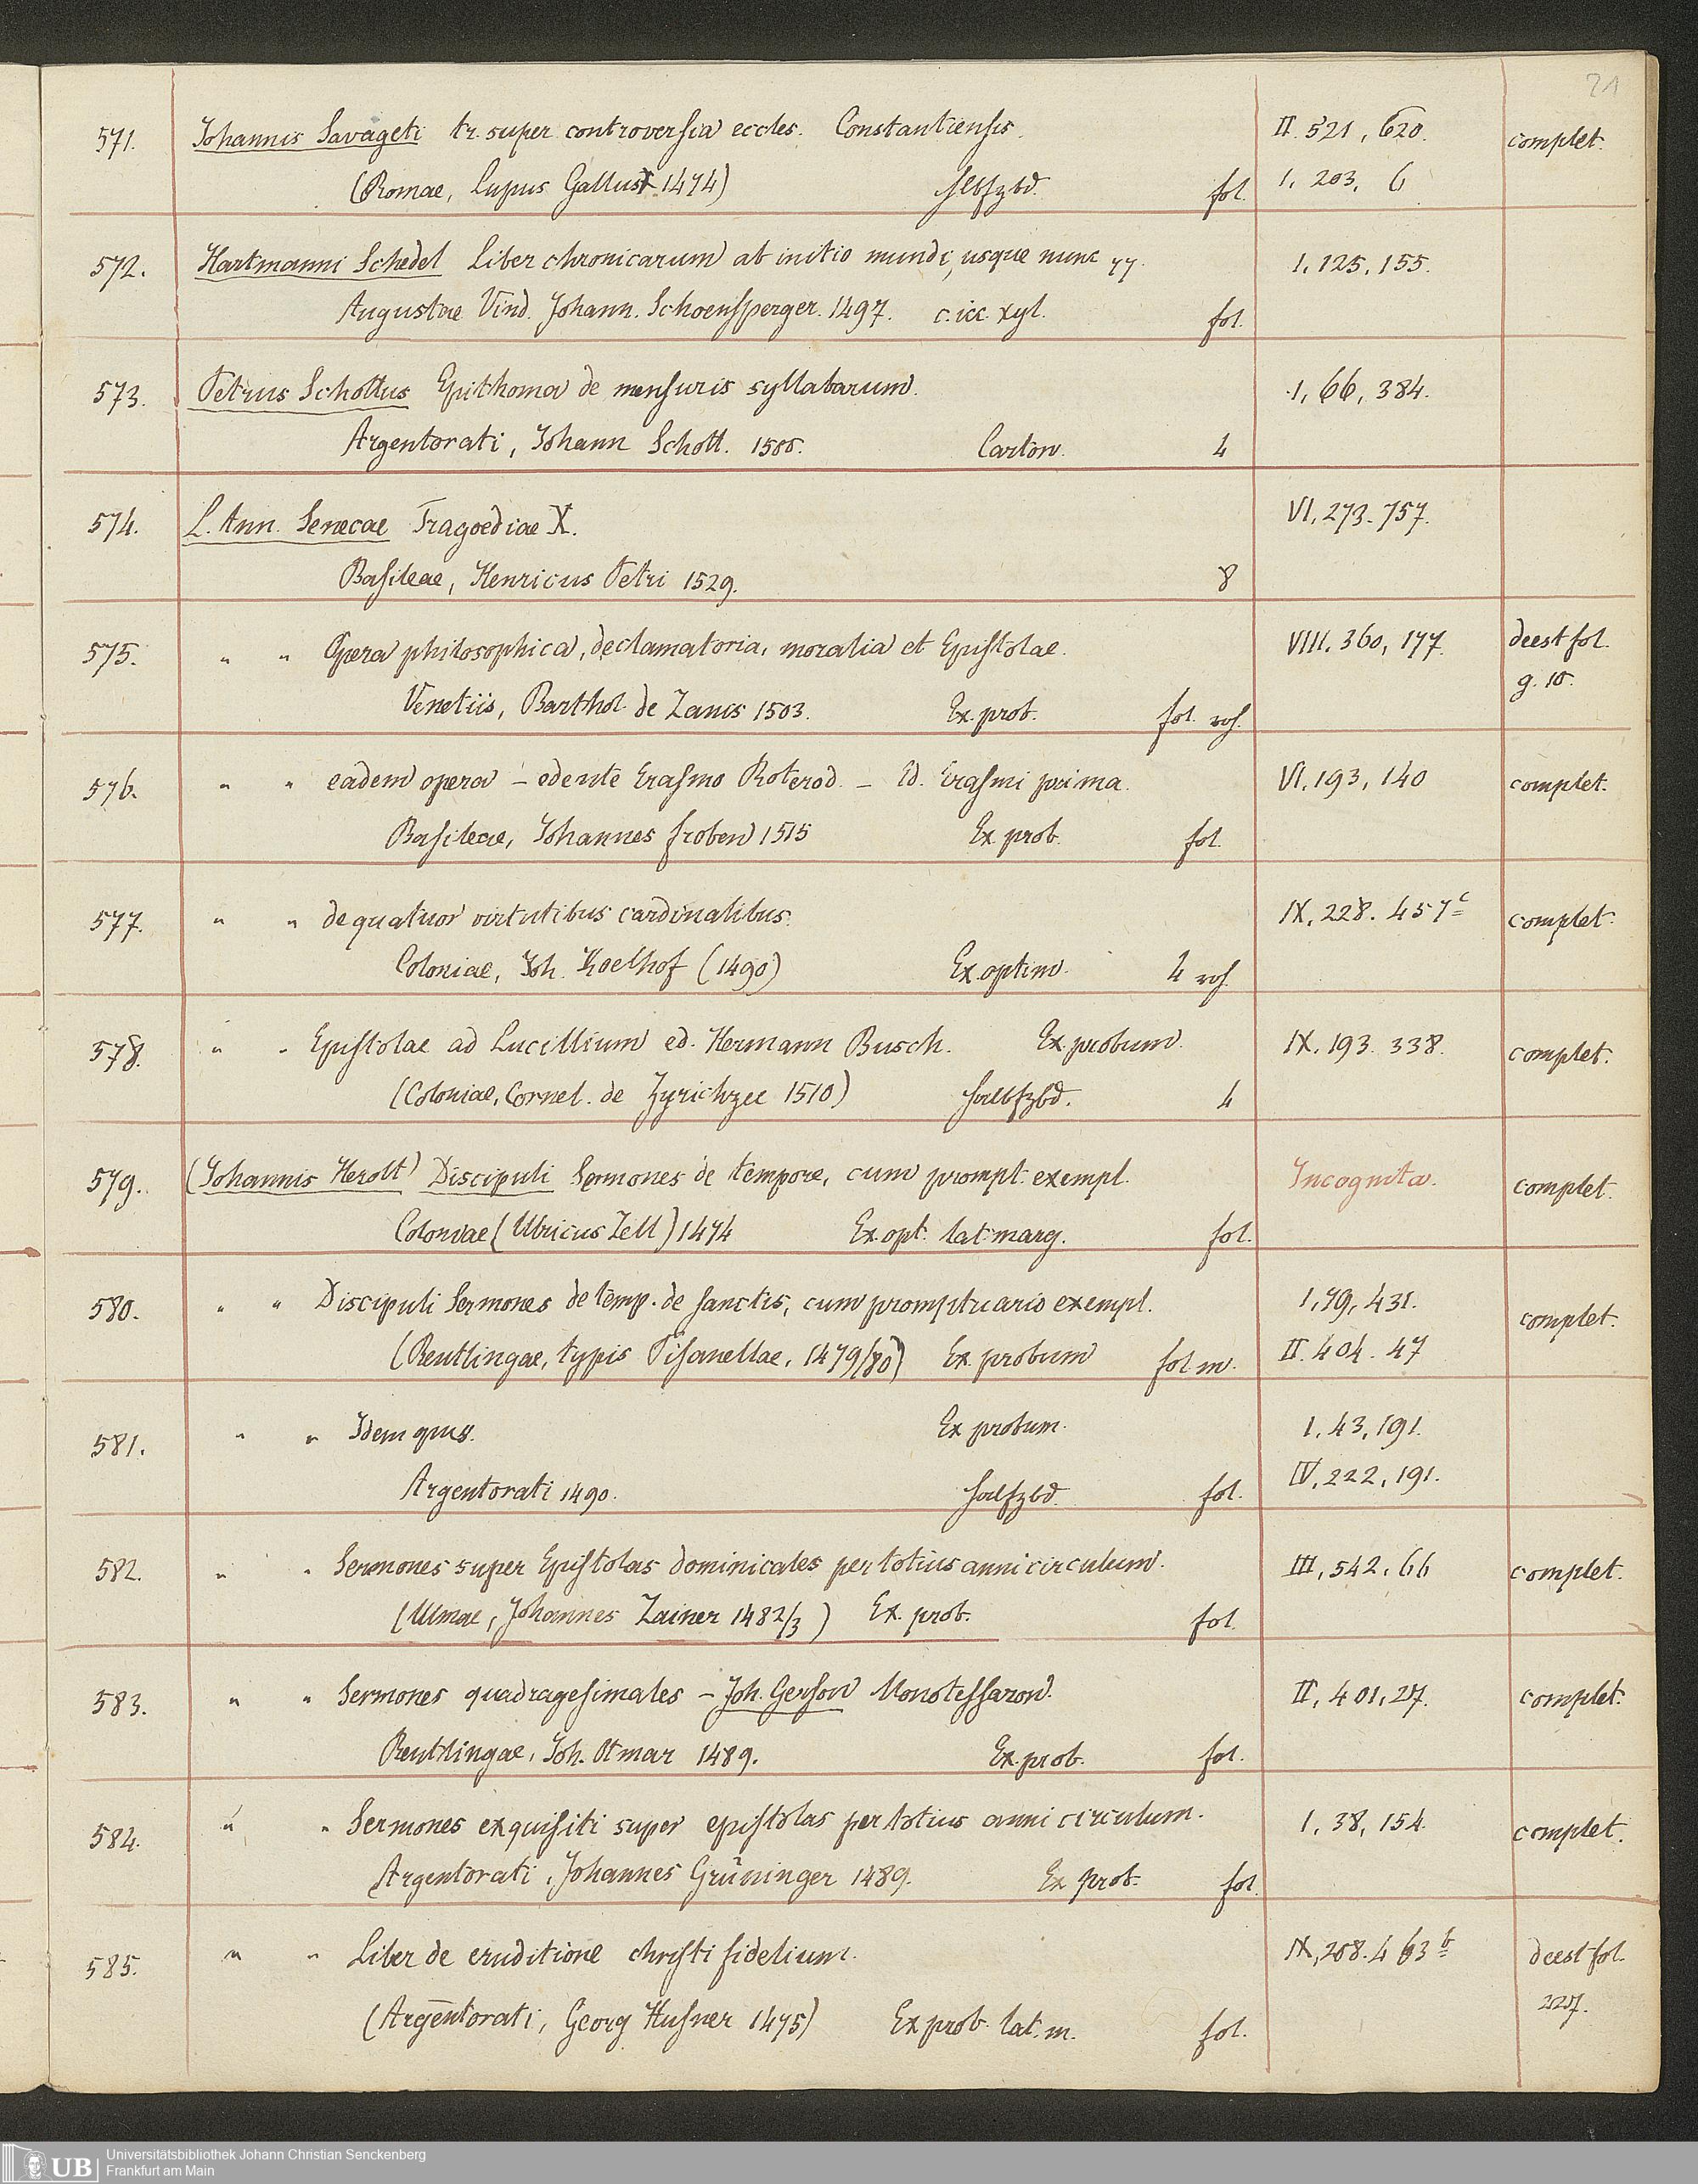 21
571. Johannis Savageti tr. super controversia eccles. Constantiensis. II. 521, 620. complet.
(Romae, Lupus Gallus 1474) hlbfzbd. fol. I. 203, 6
572. Hartmanni Schedel Liber chronicarum ab initio mundi, usque nunc I. 125. 155.
Augustae Vind. Johann. Schoensperger. 1497. c. ic. xyl. fol.
573. Petrus Schottus Epithoma de mensuris syllabarum. I, 66, 384.
Argentorati, Johann Schott. 1500. Carton. 4
574. L. Ann. Senecae Tragoediae X. VI. 273. 757.
Basileae, Henricus Petri 1529. 8
575. " " Opera philosophica, declamatoria, moralia et Epistolae. VIII. 360, 177. deest fol.
g. 10.
Venetiis, Barthol. de Zanis 1503. Ex. prob. fol. roh.
576. " " eadem opera – edente Erasmo Roterod. – Ed. Erasmi prima. VI. 193, 140 complet.
Basileae, Johannes Froben 1515 Ex. prob. fol.
577. " " de quatuor virtutibus cardinalibus. IX, 228. 457c complet.
Coloniae, Joh. Koelhof (1490) Ex. optim. 4 roh.
578. " " Epistolae ad Lucillium ed. Hermann Busch. Ex. probum. IX. 193. 338. complet.
(Coloniae, Cornel. de Zyrichzee 1510) halbfzbd. 4
579. (Johannis Herolt) Discipuli Sermones de tempore, cum prompt. exempl. Incognita. complet.
Coloniae (Ulricus Zell) 1474 Ex. opt. lat. marg. fol.
580. " " Discipuli Sermones de temp. de sanctis, cum promptuario exempl. I, 79, 431. complet.
(Reutlingae, typis Pisanellae, 1479/80) Ex. probum fol. m. II. 404. 47
581. " " Idem opus. Ex probum. I. 43, 191.
Argentorati 1490. halfzbd. fol. IV, 222, 191.
582. " " Sermones super Epistolas dominicales per totius anni circulum. III, 542. 66 complet.
(Ulmae, Johannes Zainer 1482/3) Ex. prob. fol.
583. " " Sermones quadragesimales – Joh. Gerson Monotessaron. II, 401, 27. complet.
Reutlingae, Joh. Otmar 1489. Ex. prob. fol.
584. " " Sermones exquisiti super epistolas per totius anni circulum. I. 38, 154. complet.
Argentorati, Johannes Grüninger 1489. Ex prob. fol.
585. " " Liber de eruditione christi fidelium. IX, 208. 463b deest fol.
227.
(Argentorati, Georg Husner 1475) Ex prob. lat. m. fol.
UB Universitätsbibliothek Johann Christian Senckenberg
Frankfurt am Main